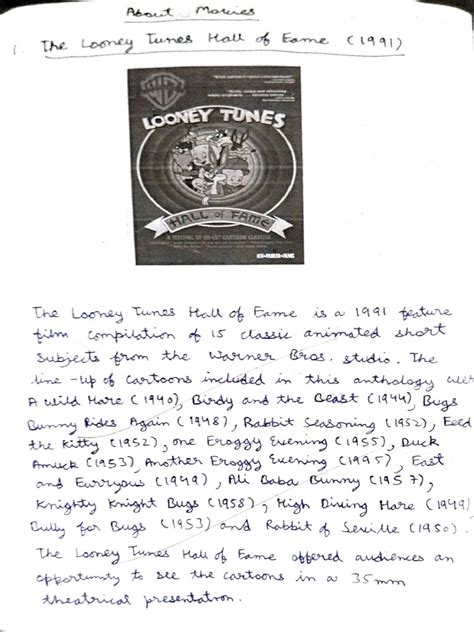 About Movies
1. The Looney Tunes Hall of Fame (1991)
LOONEY TUNES
HALL OF FAME
A FESTIVAL OF UN-CUT CARTOON CLASSICS
The Looney Tunes Hall of Fame is a 1991 feature
film compilation of 15 classic animated short
subjects from the Warner Bros. studio. The
line-up of cartoons included in this anthology were
A Wild Hare (1940), Birdy and the Beast (1944), Bugs
Bunny Rides Again (1948), Rabbit Seasoning (1952), Feed
the Kitty (1952), one Froggy Evening (1955), Duck
Amuck (1953), Another Froggy Evening (1995), East
and Eurryous (1949), Ali Baba Bunny (1957),
Knighty Knight Bugs (1958), High Diving Hare (1949)
Bully for Bugs (1953) and Rabbit of Seville (1950).
The Looney Tunes Hall of Fame offered audiences an
opportunity to see the cartoons in a 35mm
theatrical presentation.